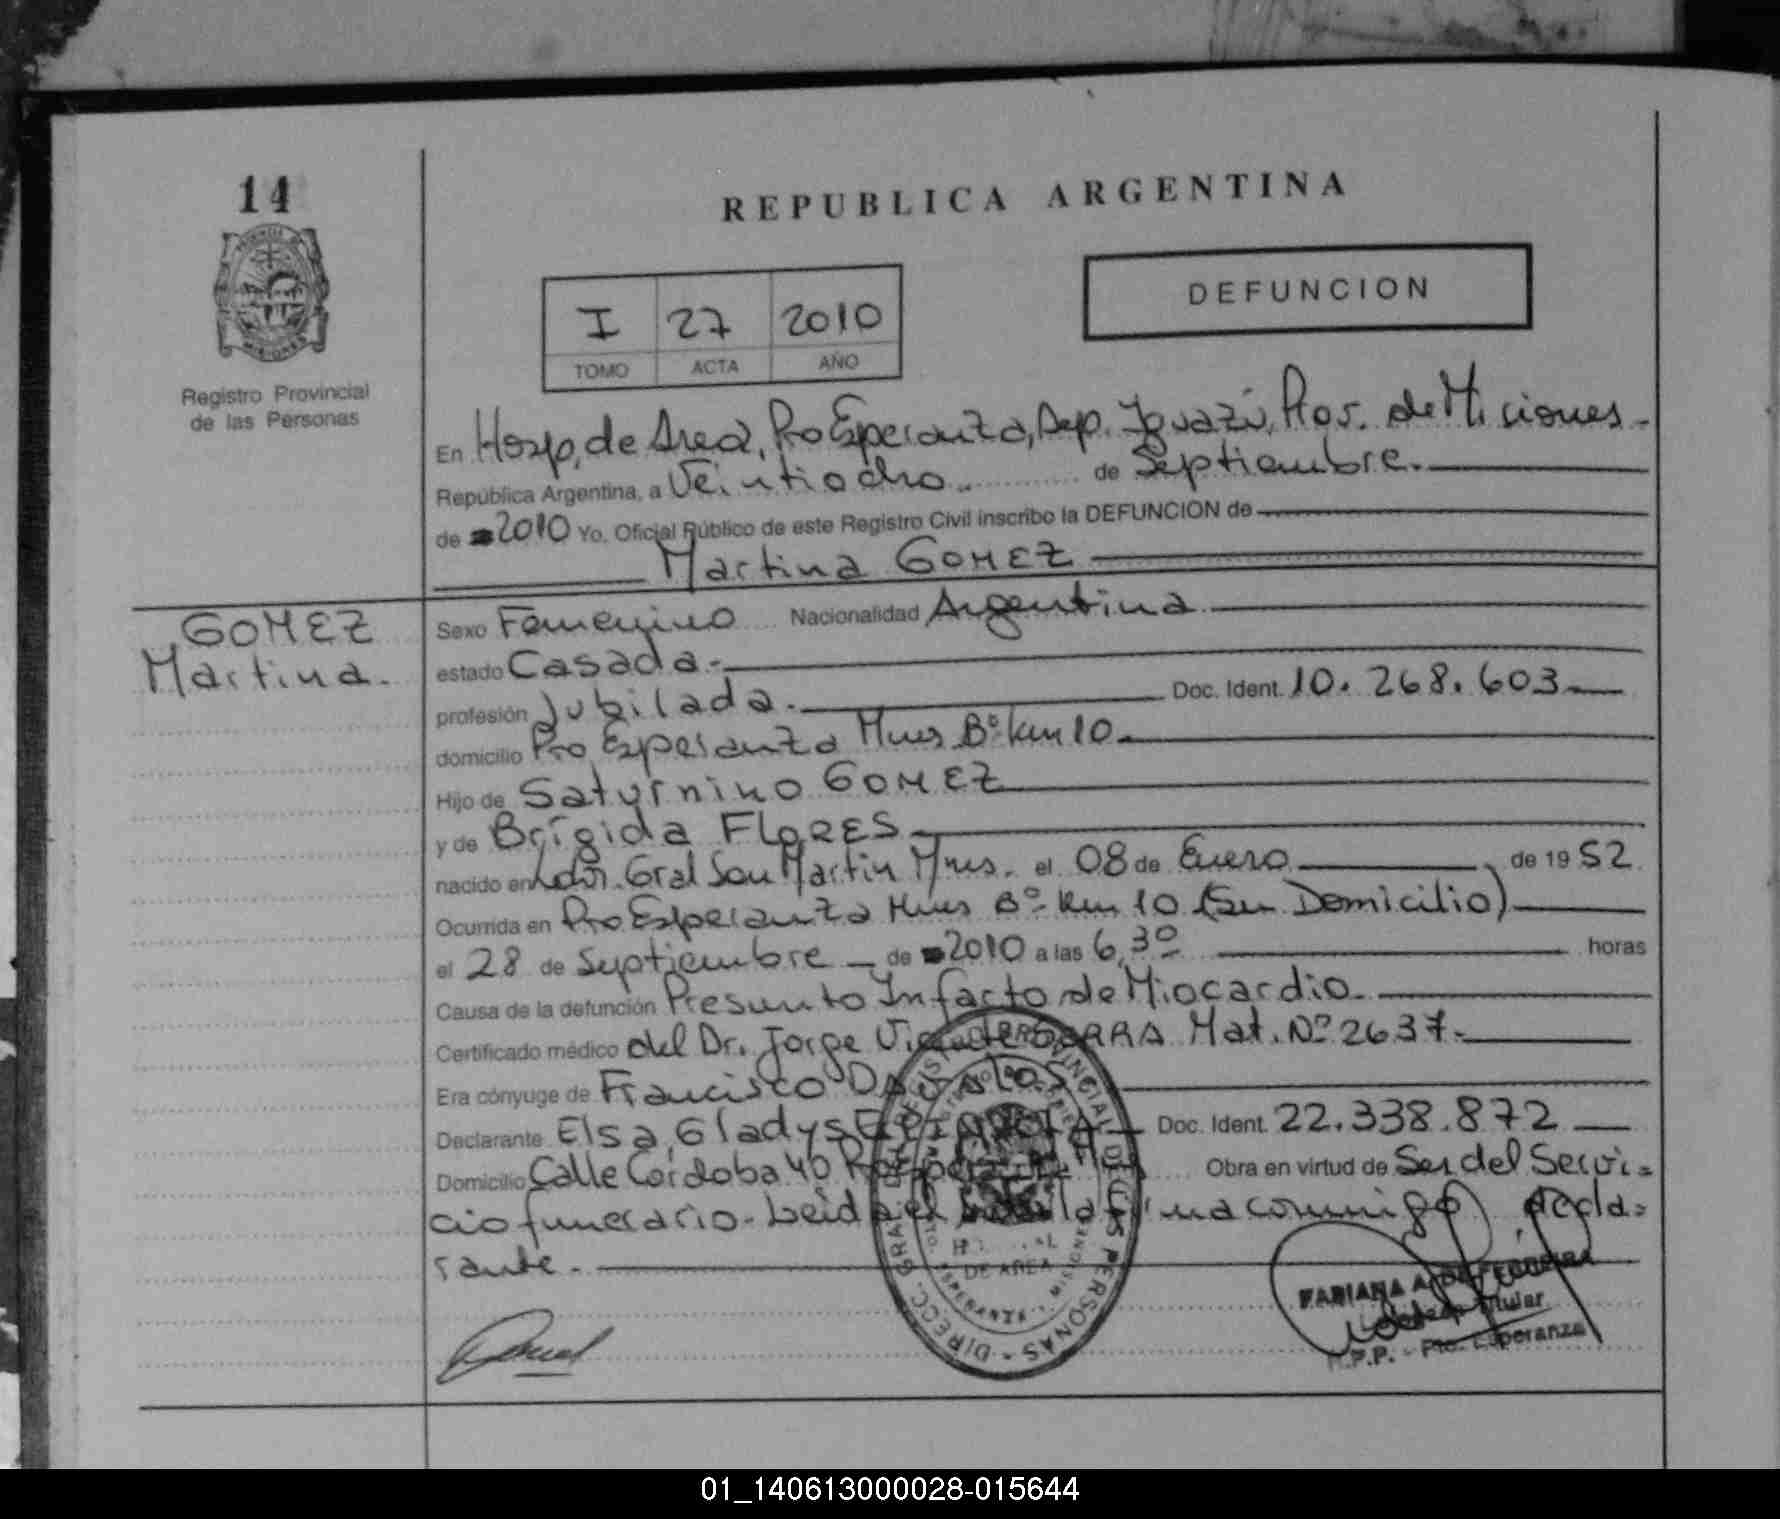 14
REPUBLICA ARGENTINA
DEFUNCION
I 27 2010
TOMO ACTA AÑO
PROVINCIA DE
MISIONES
Registro Provincial
de las Personas
En Hosp. de Area, Pto Esperanza, Dep. Iguazú, Prov. de Misiones.
República Argentina, a Veintiocho de Septiembre.
de 2010 Yo, Oficial Público de este Registro Civil inscribo la DEFUNCION de
Martina GOMEZ
GOMEZ
Martina.
Sexo Femenino Nacionalidad Argentina
estado Casada.
profesión Jubilada. Doc. Ident. 10.268.603
domicilio Pto Esperanza Mnes Bº Km 10.
Hijo de Saturnino GOMEZ
y de Brígida FLORES
nacido en Ldor. Gral San Martin Mnes. el 08 de Enero de 1952
Ocurrida en Pto Esperanza Mnes Bº Km 10 (Su Domicilio)
el 28 de Septiembre de 2010 a las 6,30 horas
Causa de la defunción Presunto Infarto de Miocardio.
Certificado médico del Dr. Jorge Mat. Nº 2637.
Era cónyuge de Francisco
Declarante Elsa Gladys Doc. Ident. 22.338.872
Domicilio Calle Córdoba 40 Obra en virtud de Ser del Servi-
cio funerario. Leida el la firma conmigo decla-
rante.
DIRECC. GRAL. DEL REGISTRO PROVINCIAL DE LAS PERSONAS
DE AREA
ESPERANZA - MISIONES
FABIANA A. DE FERREIRA
Titular
R.P.P. - Pto. Esperanza
01_140613000028-015644